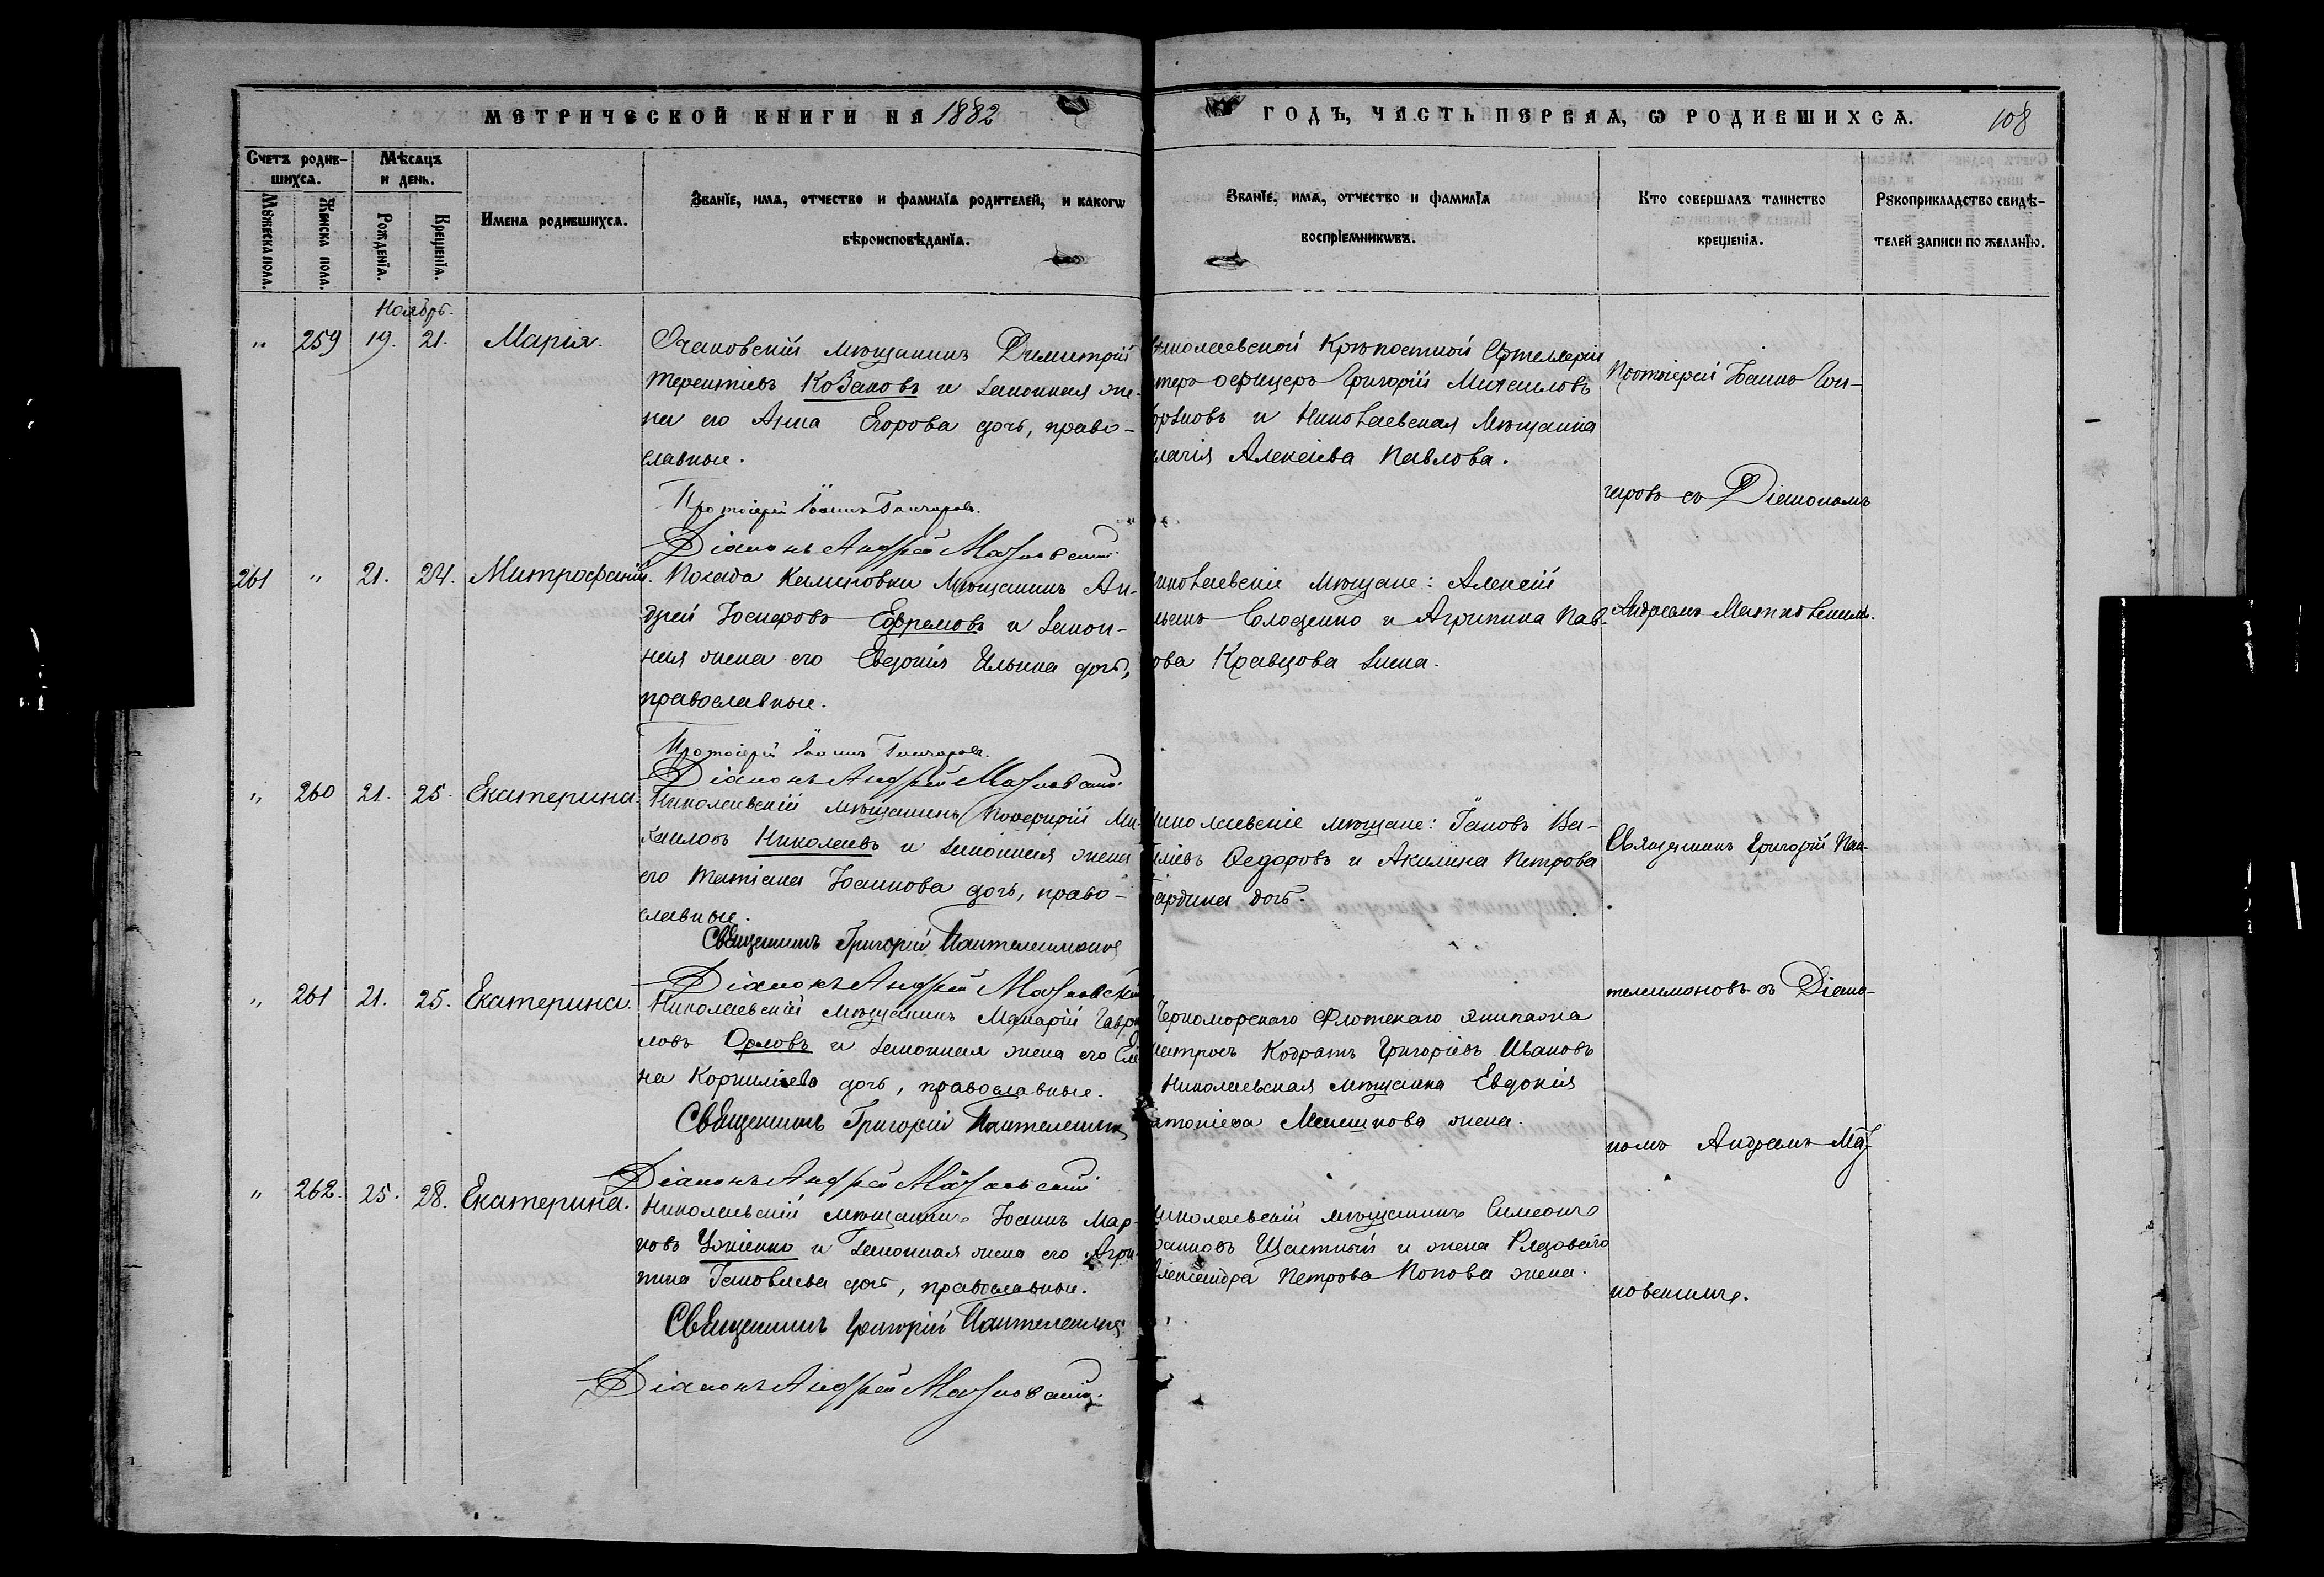 МЕТРИЧЕСКОЙ КНИГИ НА 1882
ГОДЪ, ЧАСТЬ ПЕРВАѦ, Ѡ РОДИВШИХСѦ.
108
Счетъ родив-
шихсѧ.
Мѣсѧцъ
и день.
Мꙋжеска пола.
Женска пола.
Рожденїѧ.
Крещенїѧ.
Имена родившихсѧ.
Званїе, имѧ, отчество и фамилїѧ родителей, и какогѡ
вѣроисповѣданїѧ.
Званїе, имѧ, отчество и фамилїѧ
воспрїемникѡвъ.
Кто совершалъ таинство
крещенїѧ.
Рꙋкоприкладство свидѣ-
телей записи по желанїю.
Ноябрь.
" 259 19. 21. Марія.
Очаковскій мѣщанинъ Димитрій
Терентіевъ Козаковъ и законная же-
на его Анна Егорова дочь, право-
славные.
Протоіерей Іоаннъ Гончаровъ.
Діаконъ Андрей Матковскій
николаевской Крѣпостной Артеллеріи
офицеръ Григорій Михаиловъ
и Николаевская Мѣщанка
Алексіева Павлова.
Протоіерей Іоаннъ Гон-
чаровъ съ Діакономъ
Андреемъ Матковскимъ.
261 " 21. 24. Митрофаній.
Посада Калиновки Мѣщанинъ Ан-
дрей Іосифовъ Ефремовъ и закон-
ная жена его Евдокія Ильина дочь,
православные.
Протоіерей Іоаннъ Гончаровъ.
Діаконъ Андрей Матковскій
николаевскіе мѣщане: Алексій
Солодченко и Агрипина Пав-
лова Кравцова жена.
" 260 21. 25. Екатерина.
Николаевскій мѣщанинъ Порфирій Ми-
хаиловъ Николаевъ и законная жена
его Татіана Іоаннова дочь, право-
славные.
Священникъ Григорій Пантелеимоновъ
Діаконъ Андрей Матковскій
Николаевскіе мѣщане: Іаковъ Ва-
силіевъ Ѳедоровъ и Акилина Петрова
дочь.
Священникъ Григорій Пан-
телеимоновъ съ Діако-
номъ Андреемъ Мат-
ковскимъ.
" 261 21. 25. Екатерина.
Николаевскій мѣщанинъ Макарій Гаври-
ловъ Орловъ и законная жена его Еле-
на Корниліева дочь, православные.
Священникъ Григорій Пантелеимоновъ
Діаконъ Андрей Матковскій
Черноморскаго Флотскаго экипажа
матросъ Кодратъ Григоріевъ Ивановъ
Николаевская мѣщанка Евдокія
Антоніева Мешкова жена.
" 262. 25. 28. Екатерина.
Николаевскій мѣщанинъ Іоаннъ Мар-
ковъ и законная жена его Агри-
пина Іаковлева дочь, православные.
Священникъ Григорій Пантелеимоновъ
Діаконъ Андрей Матковскій
николаевскій мѣщанинъ Симеонъ
Іоанновъ Щастный и жена Рядоваго
Александра Петрова Попова жена.